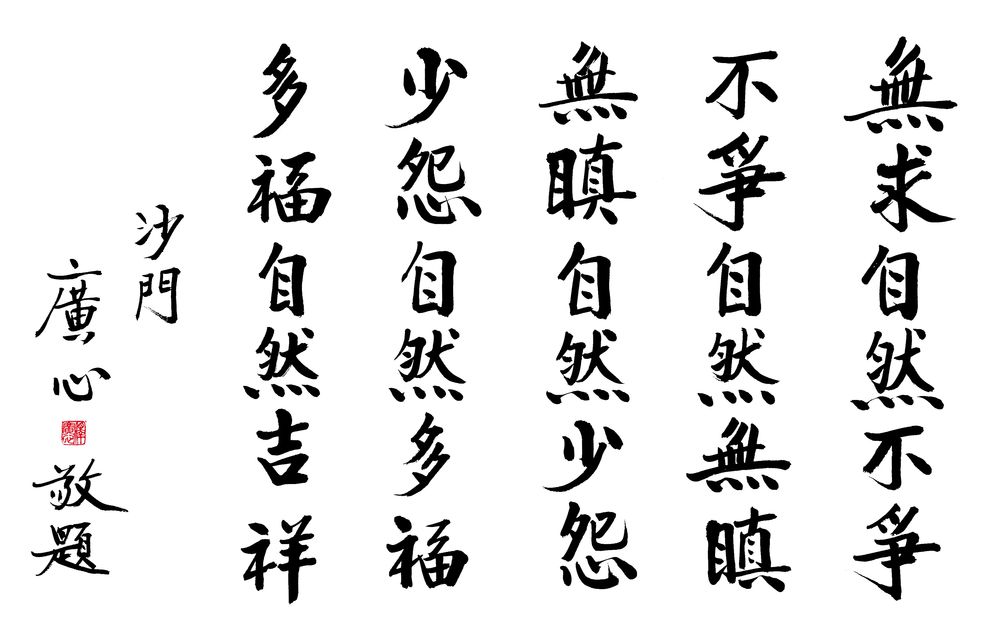 無求自然不爭
不爭自然無瞋
無瞋自然少怨
少怨自然多福
多福自然吉祥
沙門
廣心
敬題